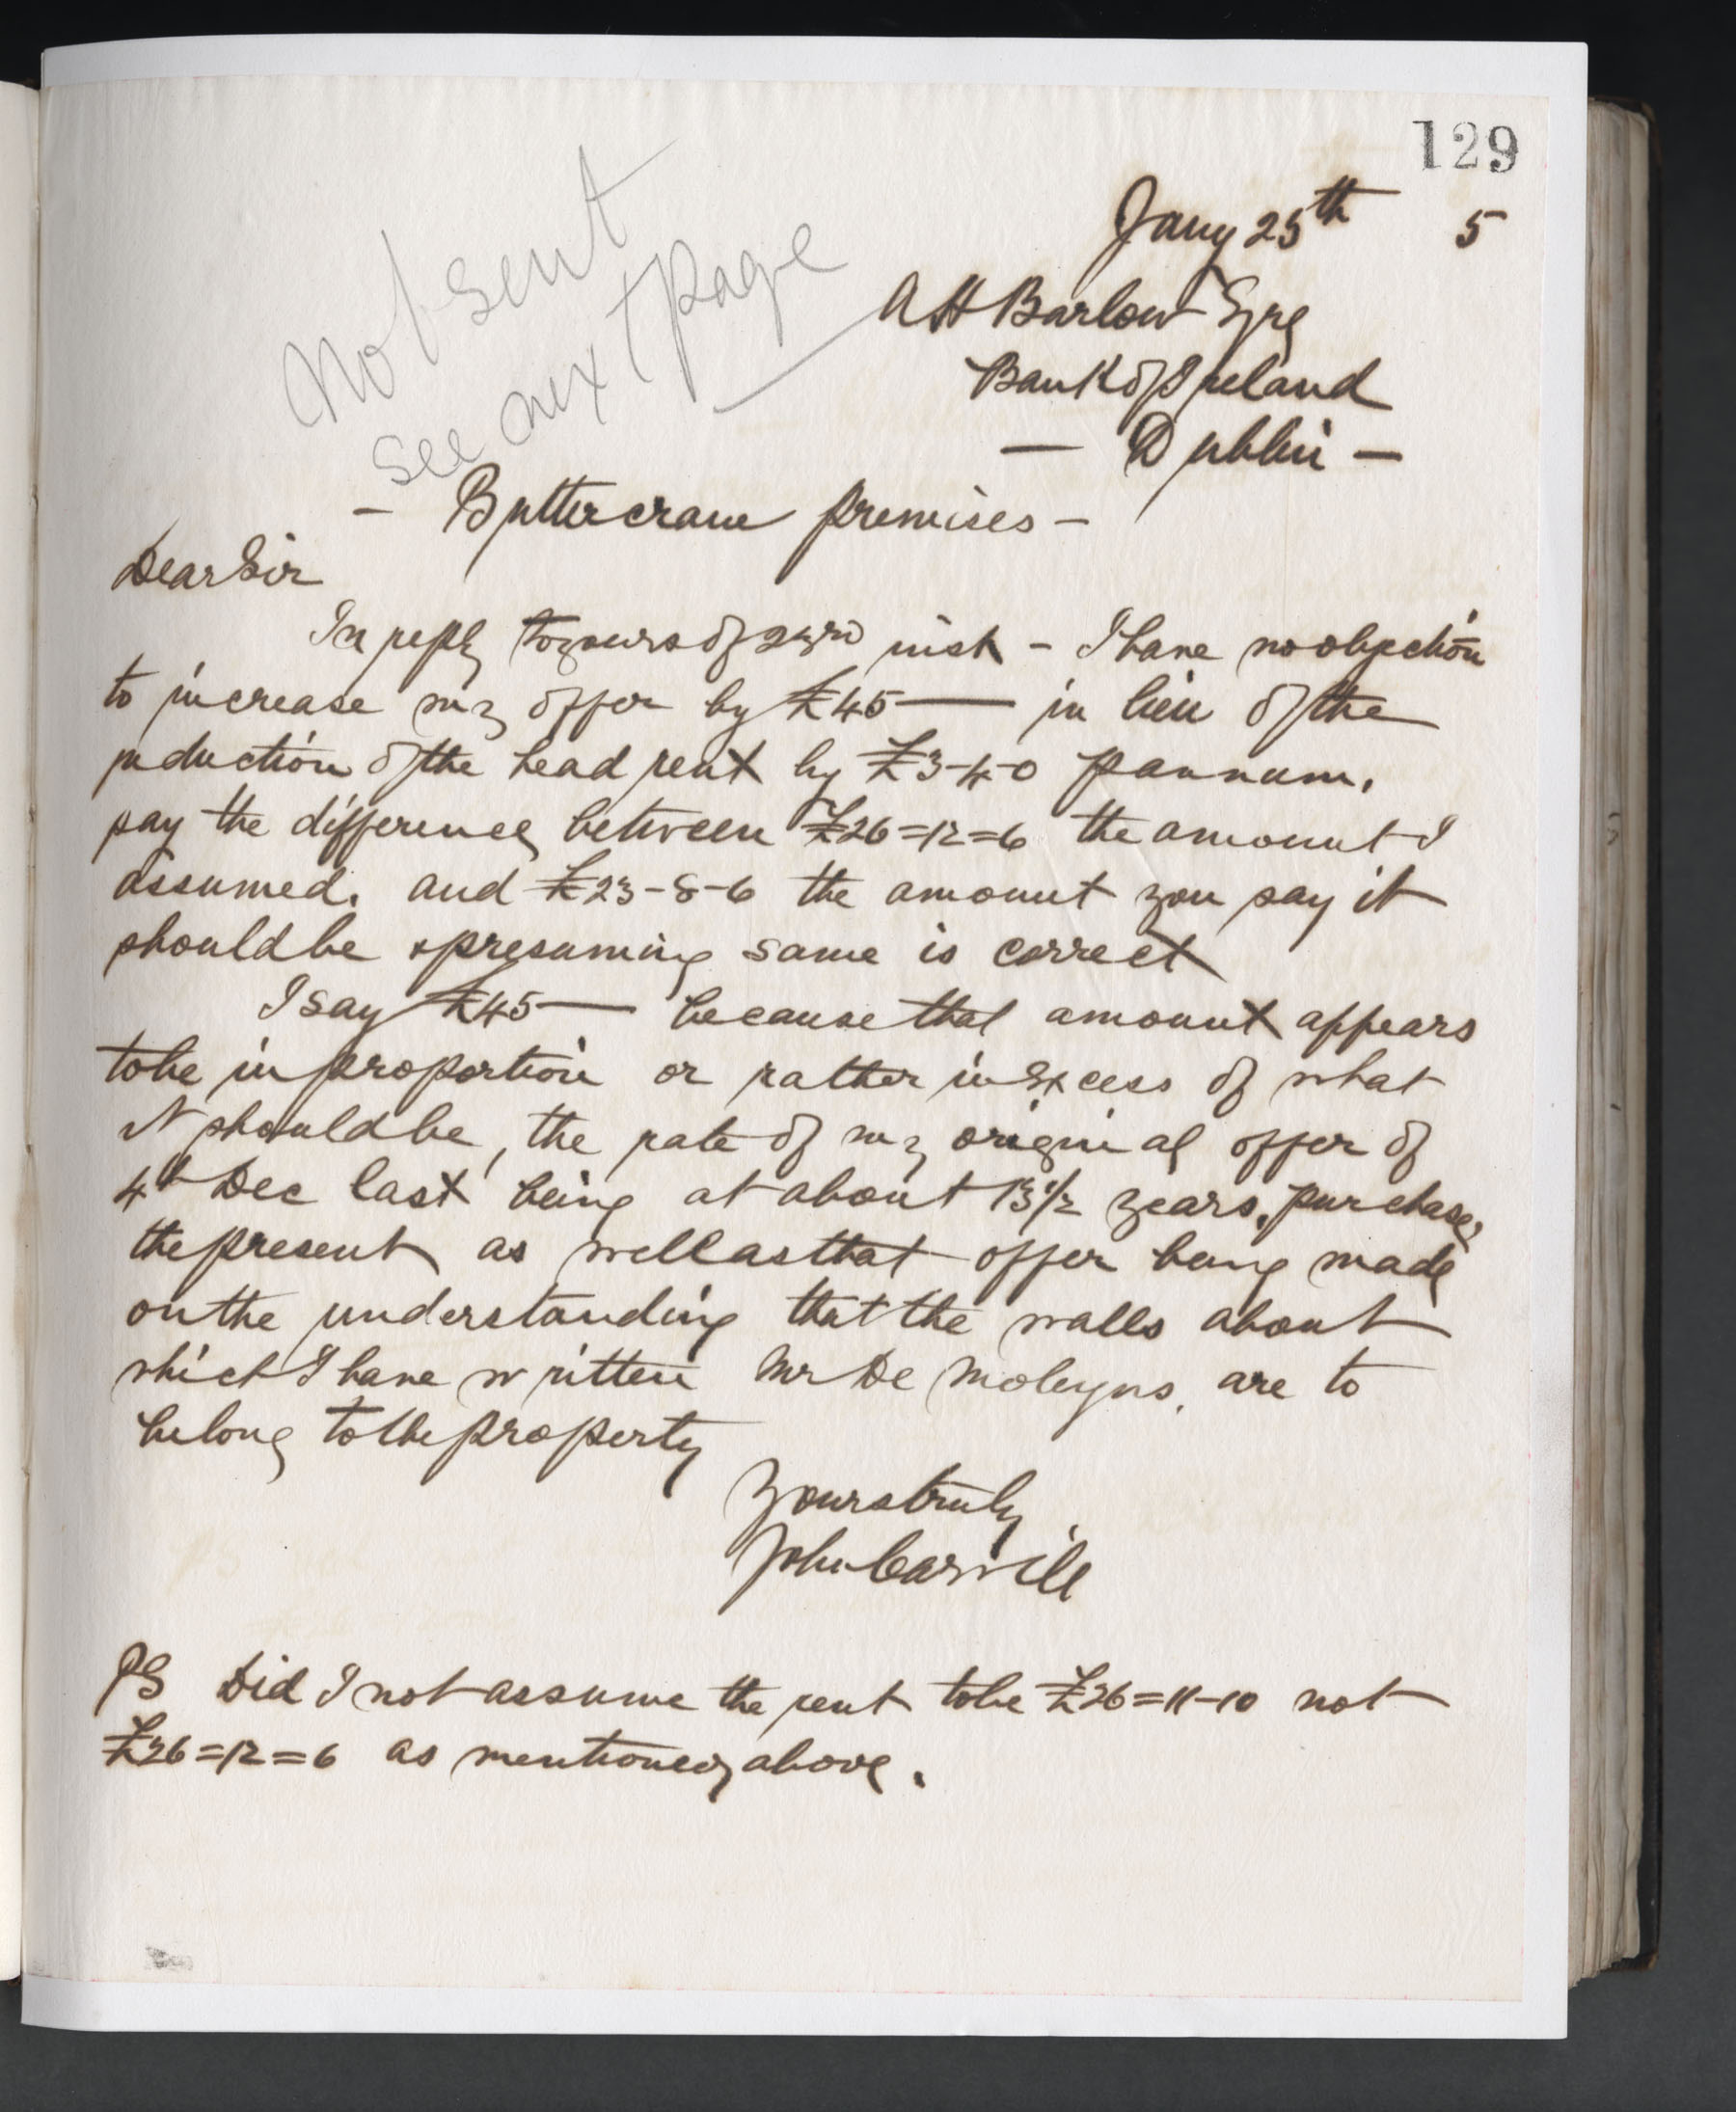 129
Jany 25th 5
Not sent
see next page
A H Barlow Esqre
Bank of Ireland
— Dublin —
— Buttercrane premises —
Dear Sir
In reply to yours of 24th inst - I have no objection
to increase my offer by £45 — in lieu of the
reduction of the head rent by £3-4-0 pannum.
say the difference between £26=12=6 the amount I
assumed. and £23-8-6 the amount you say it
should be & presuming same is correct
I say £45 — because that amount appears
to be in proportion or rather in excess of what
it should be, the rate of my original offer of
4th Dec last being at about 13½ years, purchase,
the present as well as that offer being made
on the understanding that the walls about
which I have written Mr De Moleyns, are to
belong to the property
Yours truly
John Carvill
PS Did I not assume the rent to be £26=11-10 not
£26=12=6 as mentioned above.